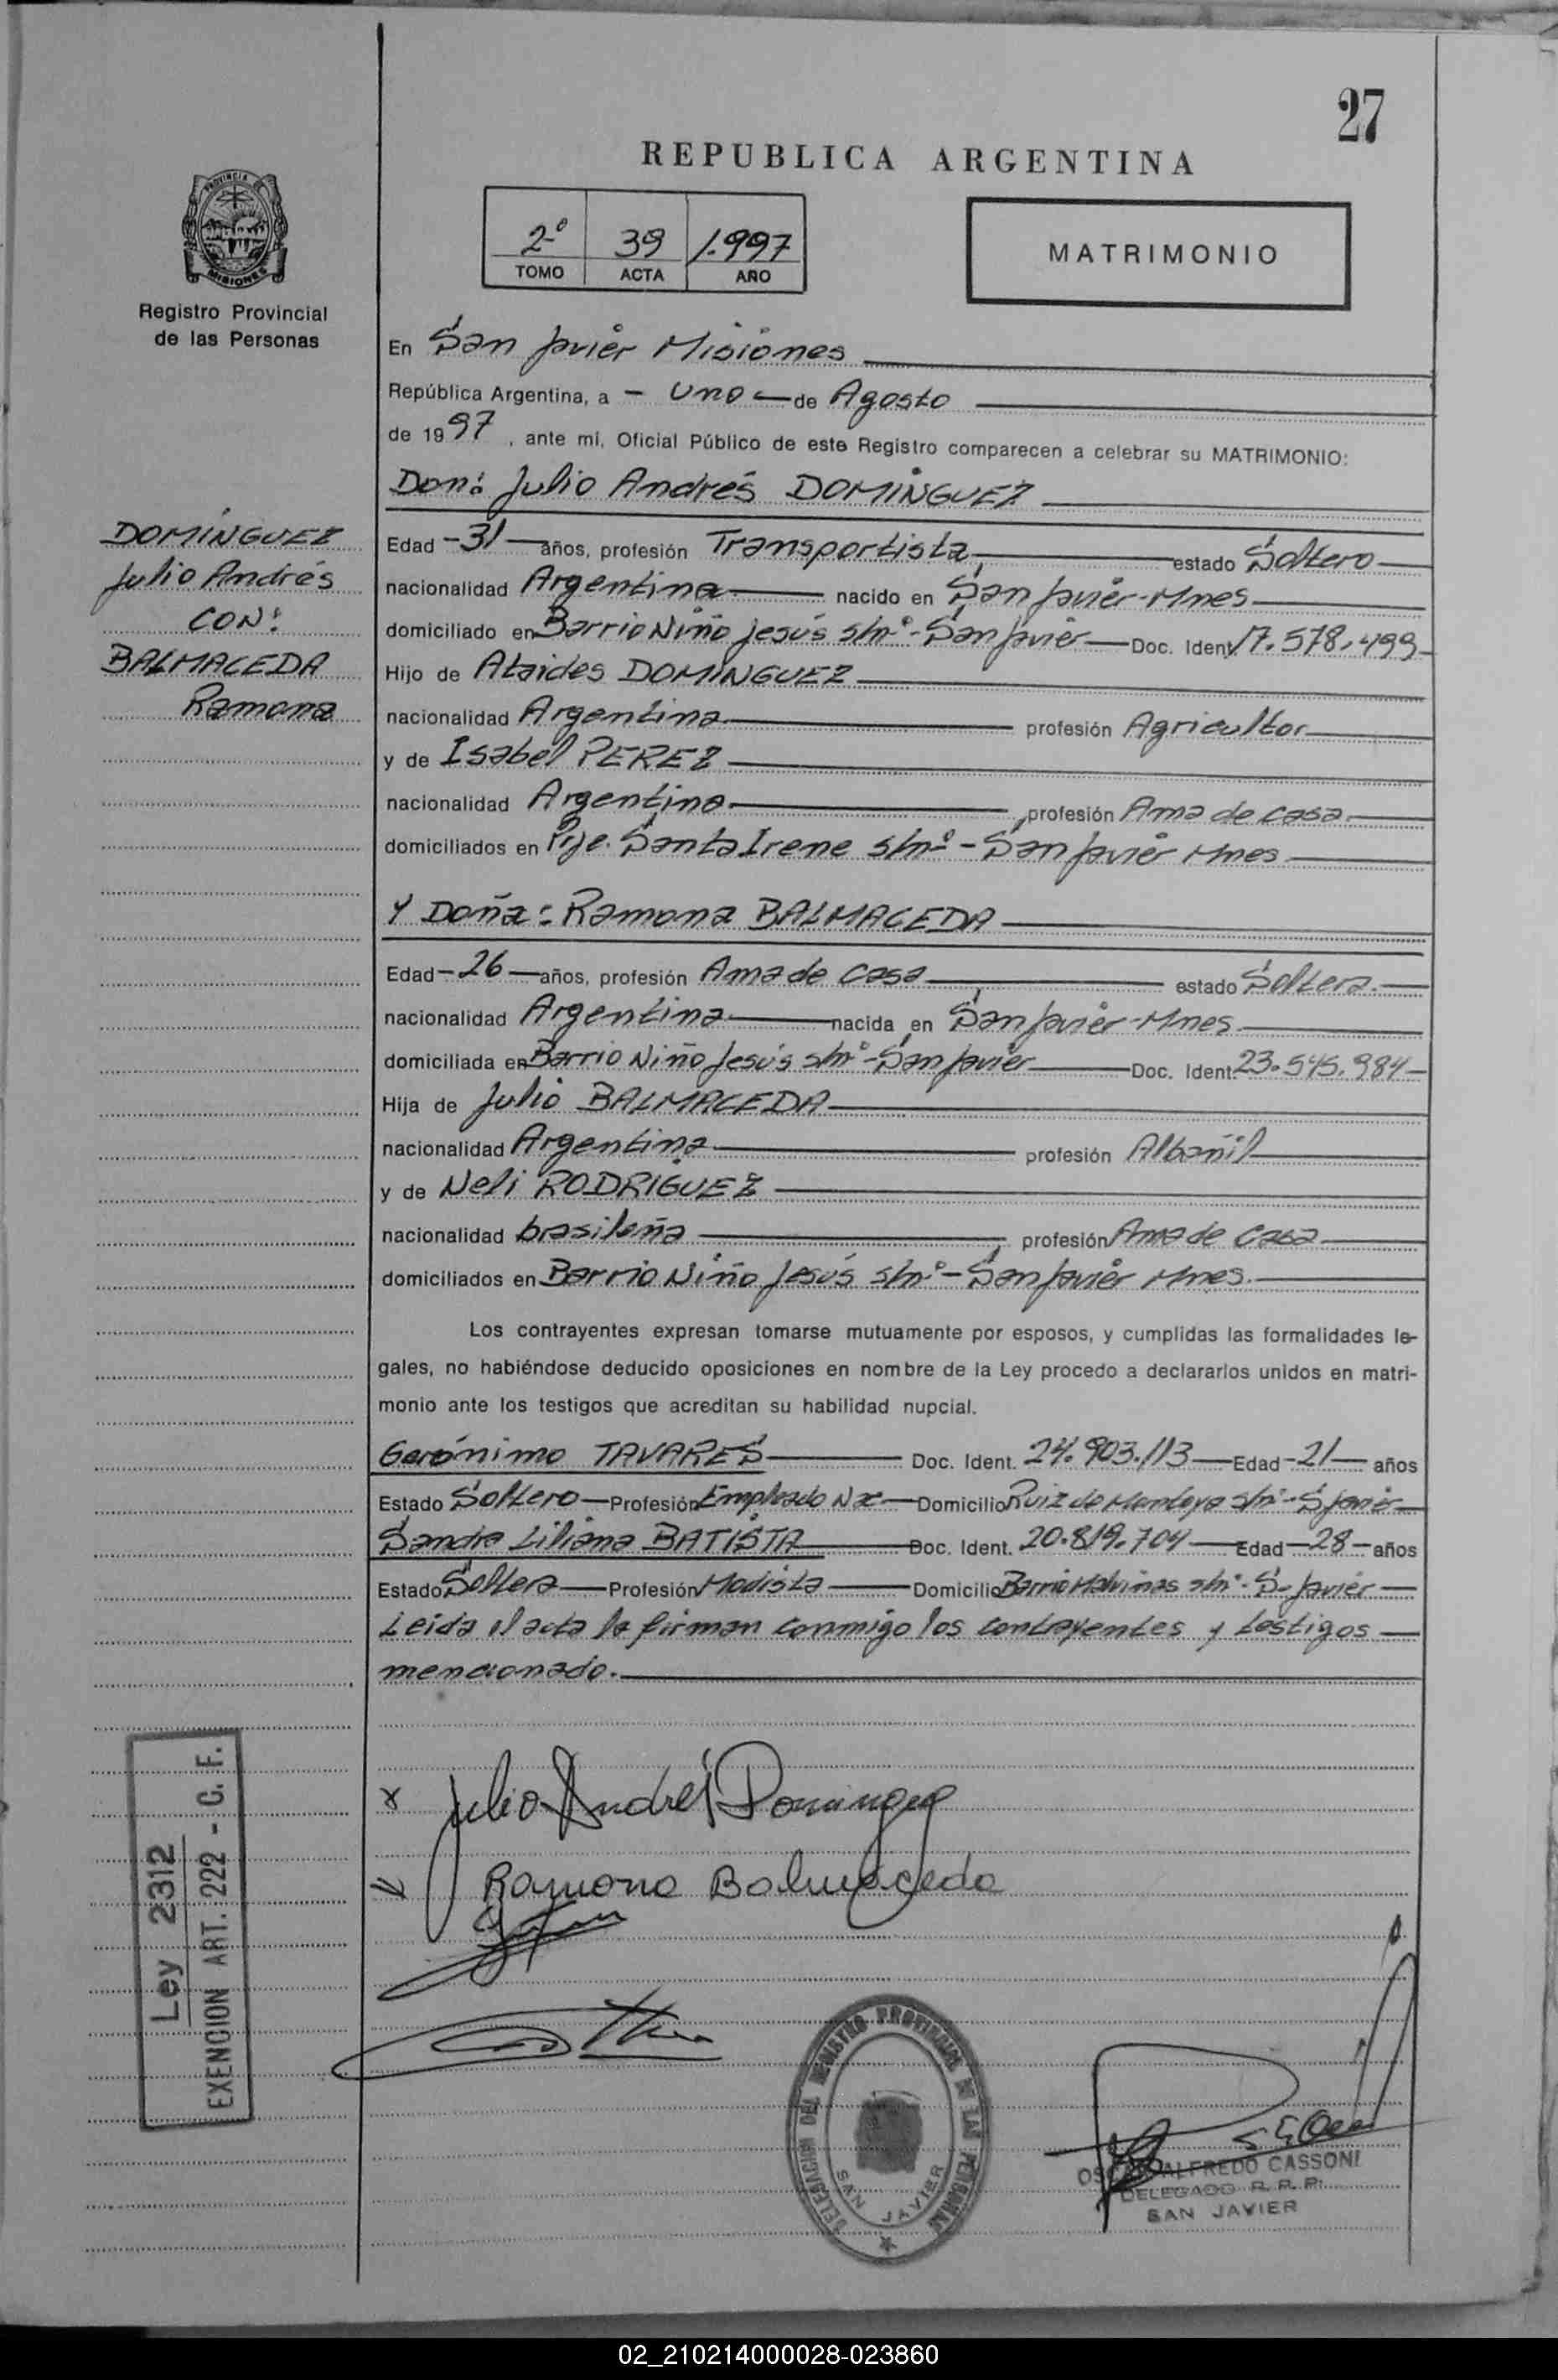 27
REPUBLICA ARGENTINA
PROVINCIA DE
MISIONES
Registro Provincial
de las Personas
2º 39 1.997
TOMO ACTA AÑO
MATRIMONIO
En San Javier Misiones
República Argentina, a - uno - de Agosto
de 1997, ante mi, Oficial Público de este Registro comparecen a celebrar su MATRIMONIO:
Don: Julio Andrés DOMINGUEZ
DOMINGUEZ
Julio Andrés
CON:
BALMACEDA
Ramona
Edad -31- años, profesión Transportista estado Soltero
nacionalidad Argentina nacido en San Javier-Mnes
domiciliado en Barrio Niño Jesús s/nº-San Javier Doc. Ident. 17.578.499
Hijo de Ataides DOMINGUEZ
nacionalidad Argentina profesión Agricultor
y de Isabel PEREZ
nacionalidad Argentina profesión Ama de casa
domiciliados en Pje. Santa Irene s/nº-San Javier Mnes
Y Doña: Ramona BALMACEDA
Edad -26- años, profesión Ama de casa estado Soltera.
nacionalidad Argentina nacida en San Javier-Mnes
domiciliada en Barrio Niño Jesús s/nº-San Javier Doc. Ident. 23.545.984
Hija de Julio BALMACEDA
nacionalidad Argentina profesión Albañil
y de Neli RODRIGUEZ
nacionalidad brasileña profesión Ama de casa
domiciliados en Barrio Niño Jesús s/nº-San Javier Mnes.
Los contrayentes expresan tomarse mutuamente por esposos, y cumplidas las formalidades le-
gales, no habiéndose deducido oposiciones en nombre de la Ley procedo a declararlos unidos en matri-
monio ante los testigos que acreditan su habilidad nupcial.
Gerónimo TAVARES Doc. Ident. 24.903.113 Edad -21- años
Estado Soltero Profesión Empleado Domicilio Ruiz de Montoya s/nº-S Javier
Sandra Liliana BATISTA Doc. Ident. 20.819.704 Edad -28- años
Estado Soltera Profesión Modista Domicilio Barrio Malvinas s/nº-S-Javier
Leida el acta la firman conmigo los contrayentes y testigos
mencionado.
Ley 2312
EXENCION ART. 222 - C. F.
x Julio Andrés Dominguez
Ramona Balmaceda
DELEGACION DEL REGISTRO PROVINCIAL DE LAS PERSONAS
SAN JAVIER
OSCAR ALFREDO CASSONI
DELEGADO R. P. P.
SAN JAVIER
02_210214000028-023860